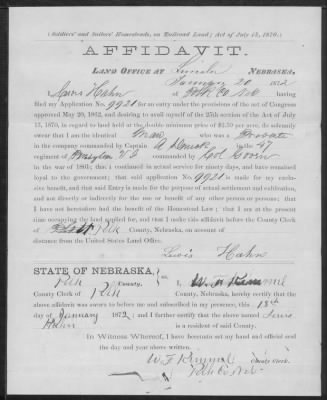 (Soldiers' and Sailors' Homesteads, on Railroad Land; Act of July 15, 1870.)
AFFIDAVIT.
LAND OFFICE AT Lincoln NEBRASKA,
January 20 1872
I, Lewis Hahn of Polk Co Neb having
filed my Application No. 9921 for an entry under the provisions of the act of Congress
approved May 20, 1862, and desiring to avail myself of the 25th section of the Act of July
15, 1870, in regard to land held at the double minimum price of $2.50 per acre, do solemnly
swear that I am the identical man who was a Private
in the company commanded by Captain A in the 47
regiment of V I commanded by Col
war of 1861; that I continued in actual service for ninety days, and have remained
loyal to the government; that said application No. 9921 is made for my exclu-
sive benefit, and that said Entry is made for the purpose of actual settlement and cultivation,
and not directly or indirectly for the use or benefit of any other person or persons; that
I have not heretofore had the benefit of the Homestead Law; that I am at present
occupying the land applied for, and that I make this affidavit before the County Clerk
of Polk County, Nebraska, on account of
distance from the United States Land Office.
Lewis Hahn
STATE OF NEBRASKA, ss.
Polk County, I, W. F. Kimmel
County Clerk of Polk County, Nebraska, hereby certify that the
above affidavit was sworn to before me and subscribed in my presence, this 18th
day of January 1872; and I further certify that the above named Lewis
Hahn is a resident of said County.
In Witness Whereof, I have hereunto set my hand and official seal
the day and year above written.
W. F. Kimmel County Clerk.
Polk Co Neb